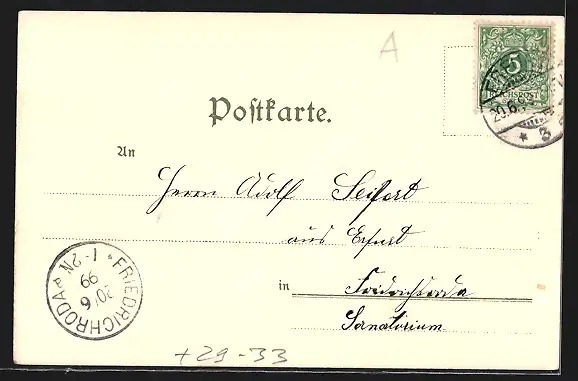 A
5
REICHSPOST
20.6.99
* 3
Postkarte.
An
Herrn Adolf Seifert
aus Erfurt
in Friedrichroda
Sanatorium
* FRIEDRICHRODA *
20 6
99
1-2N
+29-33